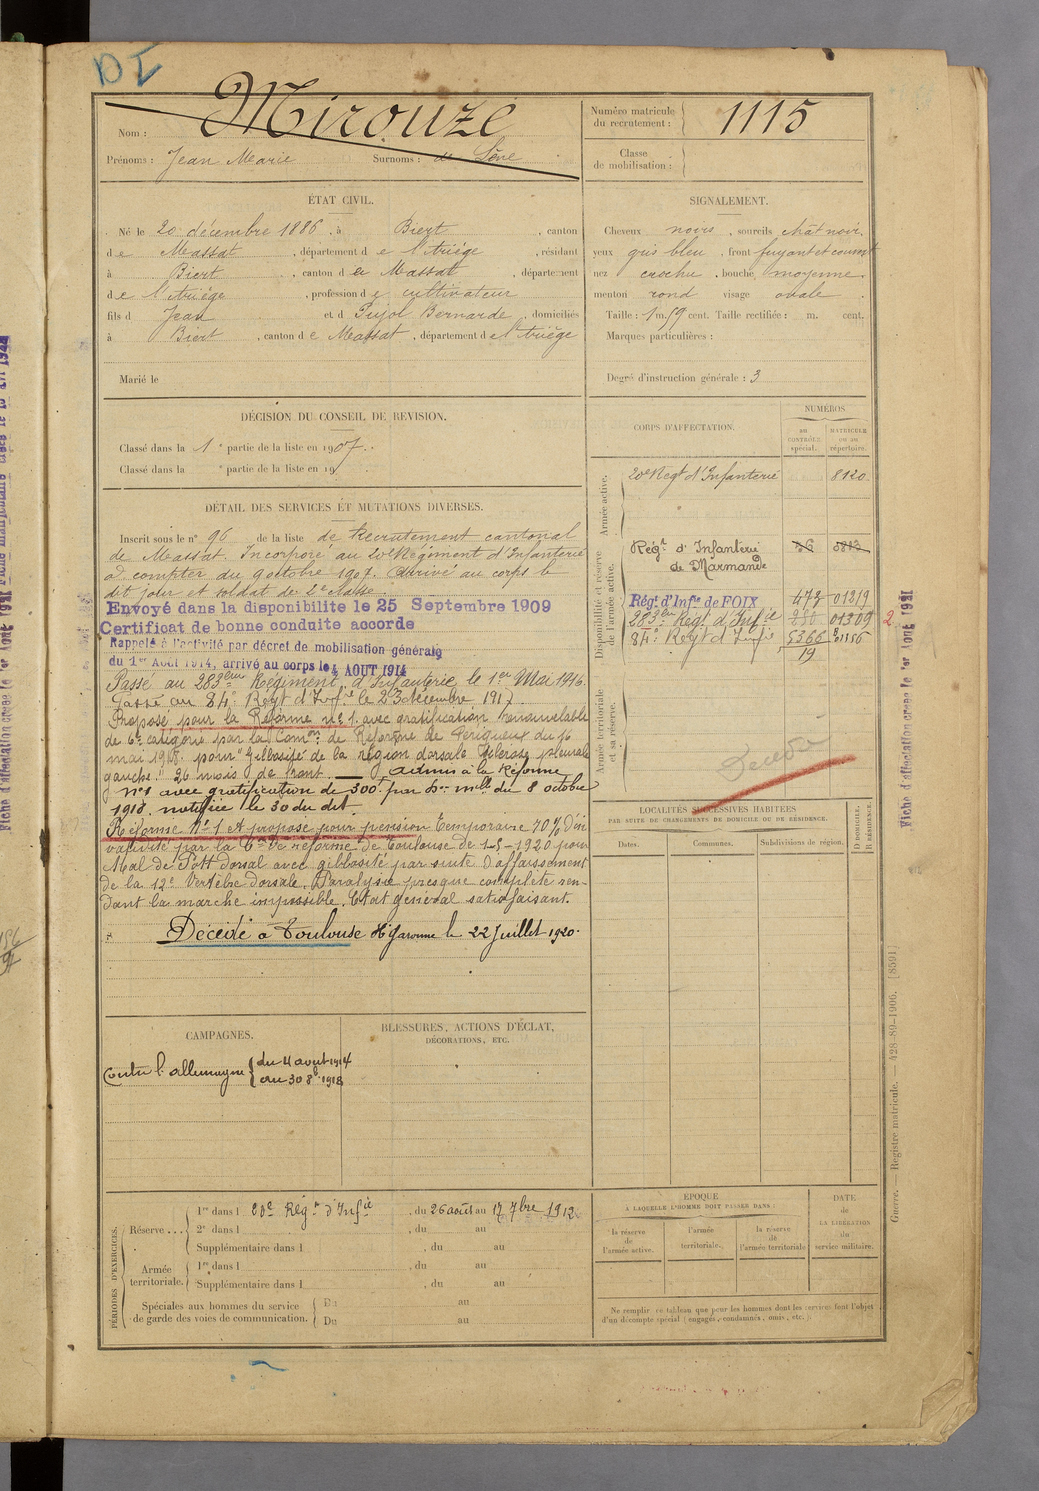 DI
Nom : Mirouze
Prénoms : Jean Marie Surnoms : de
Numéro matricule du recrutement : 1115
Classe de mobilisation :
ÉTAT CIVIL.
Né le 20 décembre 1886, à Biert, canton
de Massat, département de l'Ariège, résidant
à Biert, canton de Massat, département
de l'Ariège, profession de cultivateur
fils d Jean et d Pujol Bernarde, domiciliés
à Biert, canton de Massat, département de l'Ariège
Marié le
SIGNALEMENT.
Cheveux noirs, sourcils chât noir.
yeux gris bleu, front fuyant et court
nez crochu, bouche moyenne.
menton rond visage ovale.
Taille : 1 m. 59 cent. Taille rectifiée : m. cent.
Marques particulières :
Degré d'instruction générale : 3
DÉCISION DU CONSEIL DE REVISION.
Classé dans la 1e partie de la liste en 1907.
Classé dans la e partie de la liste en 19
DÉTAIL DES SERVICES ET MUTATIONS DIVERSES.
Inscrit sous le n° 96 de la liste de Recrutement cantonal
de Massat. Incorporé au 20e Régiment d'Infanterie
à compter du 9 octobre 1907. Arrivé au corps le
dit jour et soldat de 2e classe.
Envoyé dans la disponibilite le 25 Septembre 1909
Certificat de bonne conduite accorde
Rappelé à l'activité par décret de mobilisation générale
du 1er Août 1914, arrivé au corps le 4 AOUT 1914
Passé au 283eme Régiment d'Infanterie le 1er Mai 1916.
Passé au 84e Regt d'Infie le 23 décembre 1917.
Proposé pour la Réforme n° 1. avec gratification renouvelable
de 6e catégorie par la Comon de Réforme de Périgueux du 16
mai 1918. pour "Gibbosité de la région dorsale Sclérose pleurale
gauche." 26 mois de front. — Admis à la Réforme
n° 1 avec gratification de 300f par Don mlle du 8 octobre
1918. notifiée le 30 du dit
Réformé N° 1 et proposé pour pension temporaire 70% d'in
validité par la Con de réforme de Toulouse de 1-5-1920 pour
Mal de Pott dorsal avec gibbosité par suite d'affaissement
de la 12e Vertèbre dorsale. Paralysie presque complète ren-
dant la marche impossible. Etat général satisfaisant.
Décédé à Toulouse Hte Garonne le 22 Juillet 1920.
CORPS D'AFFECTATION.
NUMÉROS
au CONTRÔLE spécial.
MATRICULE ou au répertoire.
Armée active.
20e Regt d'Infanterie 8120
Disponibilité et réserve de l'armée active.
Régt d'Infanterie de Marmande 36
Régt d'Infie de FOIX 473 01319
283em Régt d'Infie 01309
84e Regt d'Infie 5366 01156
19
Armée territoriale et sa réserve.
Décédé
LOCALITÉS SUCCESSIVES HABITÉES
PAR SUITE DE CHANGEMENTS DE DOMICILE OU DE RÉSIDENCE.
Dates. Communes. Subdivisions de région. D DOMICILE. R RÉSIDENCE.
CAMPAGNES.
Contre l'allemagne du 4 août 1914
au 30 8bre 1918
BLESSURES, ACTIONS D'ÉCLAT,
DÉCORATIONS, ETC.
PÉRIODES D'EXERCICES.
Réserve...
1re dans l 20e Régt d'Infie, du 26 août au 17 7bre 1912
2e dans l , du au
Supplémentaire dans l , du au
Armée territoriale.
1re dans l , du au
Supplémentaire dans l , du au
Spéciales aux hommes du service
de garde des voies de communication.
Du au
Du au
ÉPOQUE
À LAQUELLE L'HOMME DOIT PASSER DANS :
la réserve de l'armée active.
l'armée territoriale.
la réserve de l'armée territoriale
DATE de LA LIBÉRATION du service militaire.
Ne remplir ce tableau que pour les hommes dont les services font l'objet
d'un décompte spécial (engagés, condamnés, omis, etc.).
Guerre. — Registre matricule. — 428-89-1906. [8591]
Fiche d'affectation créée le 1er Août 1921
2
Fiche d'affectation créée le 1er Août 1921